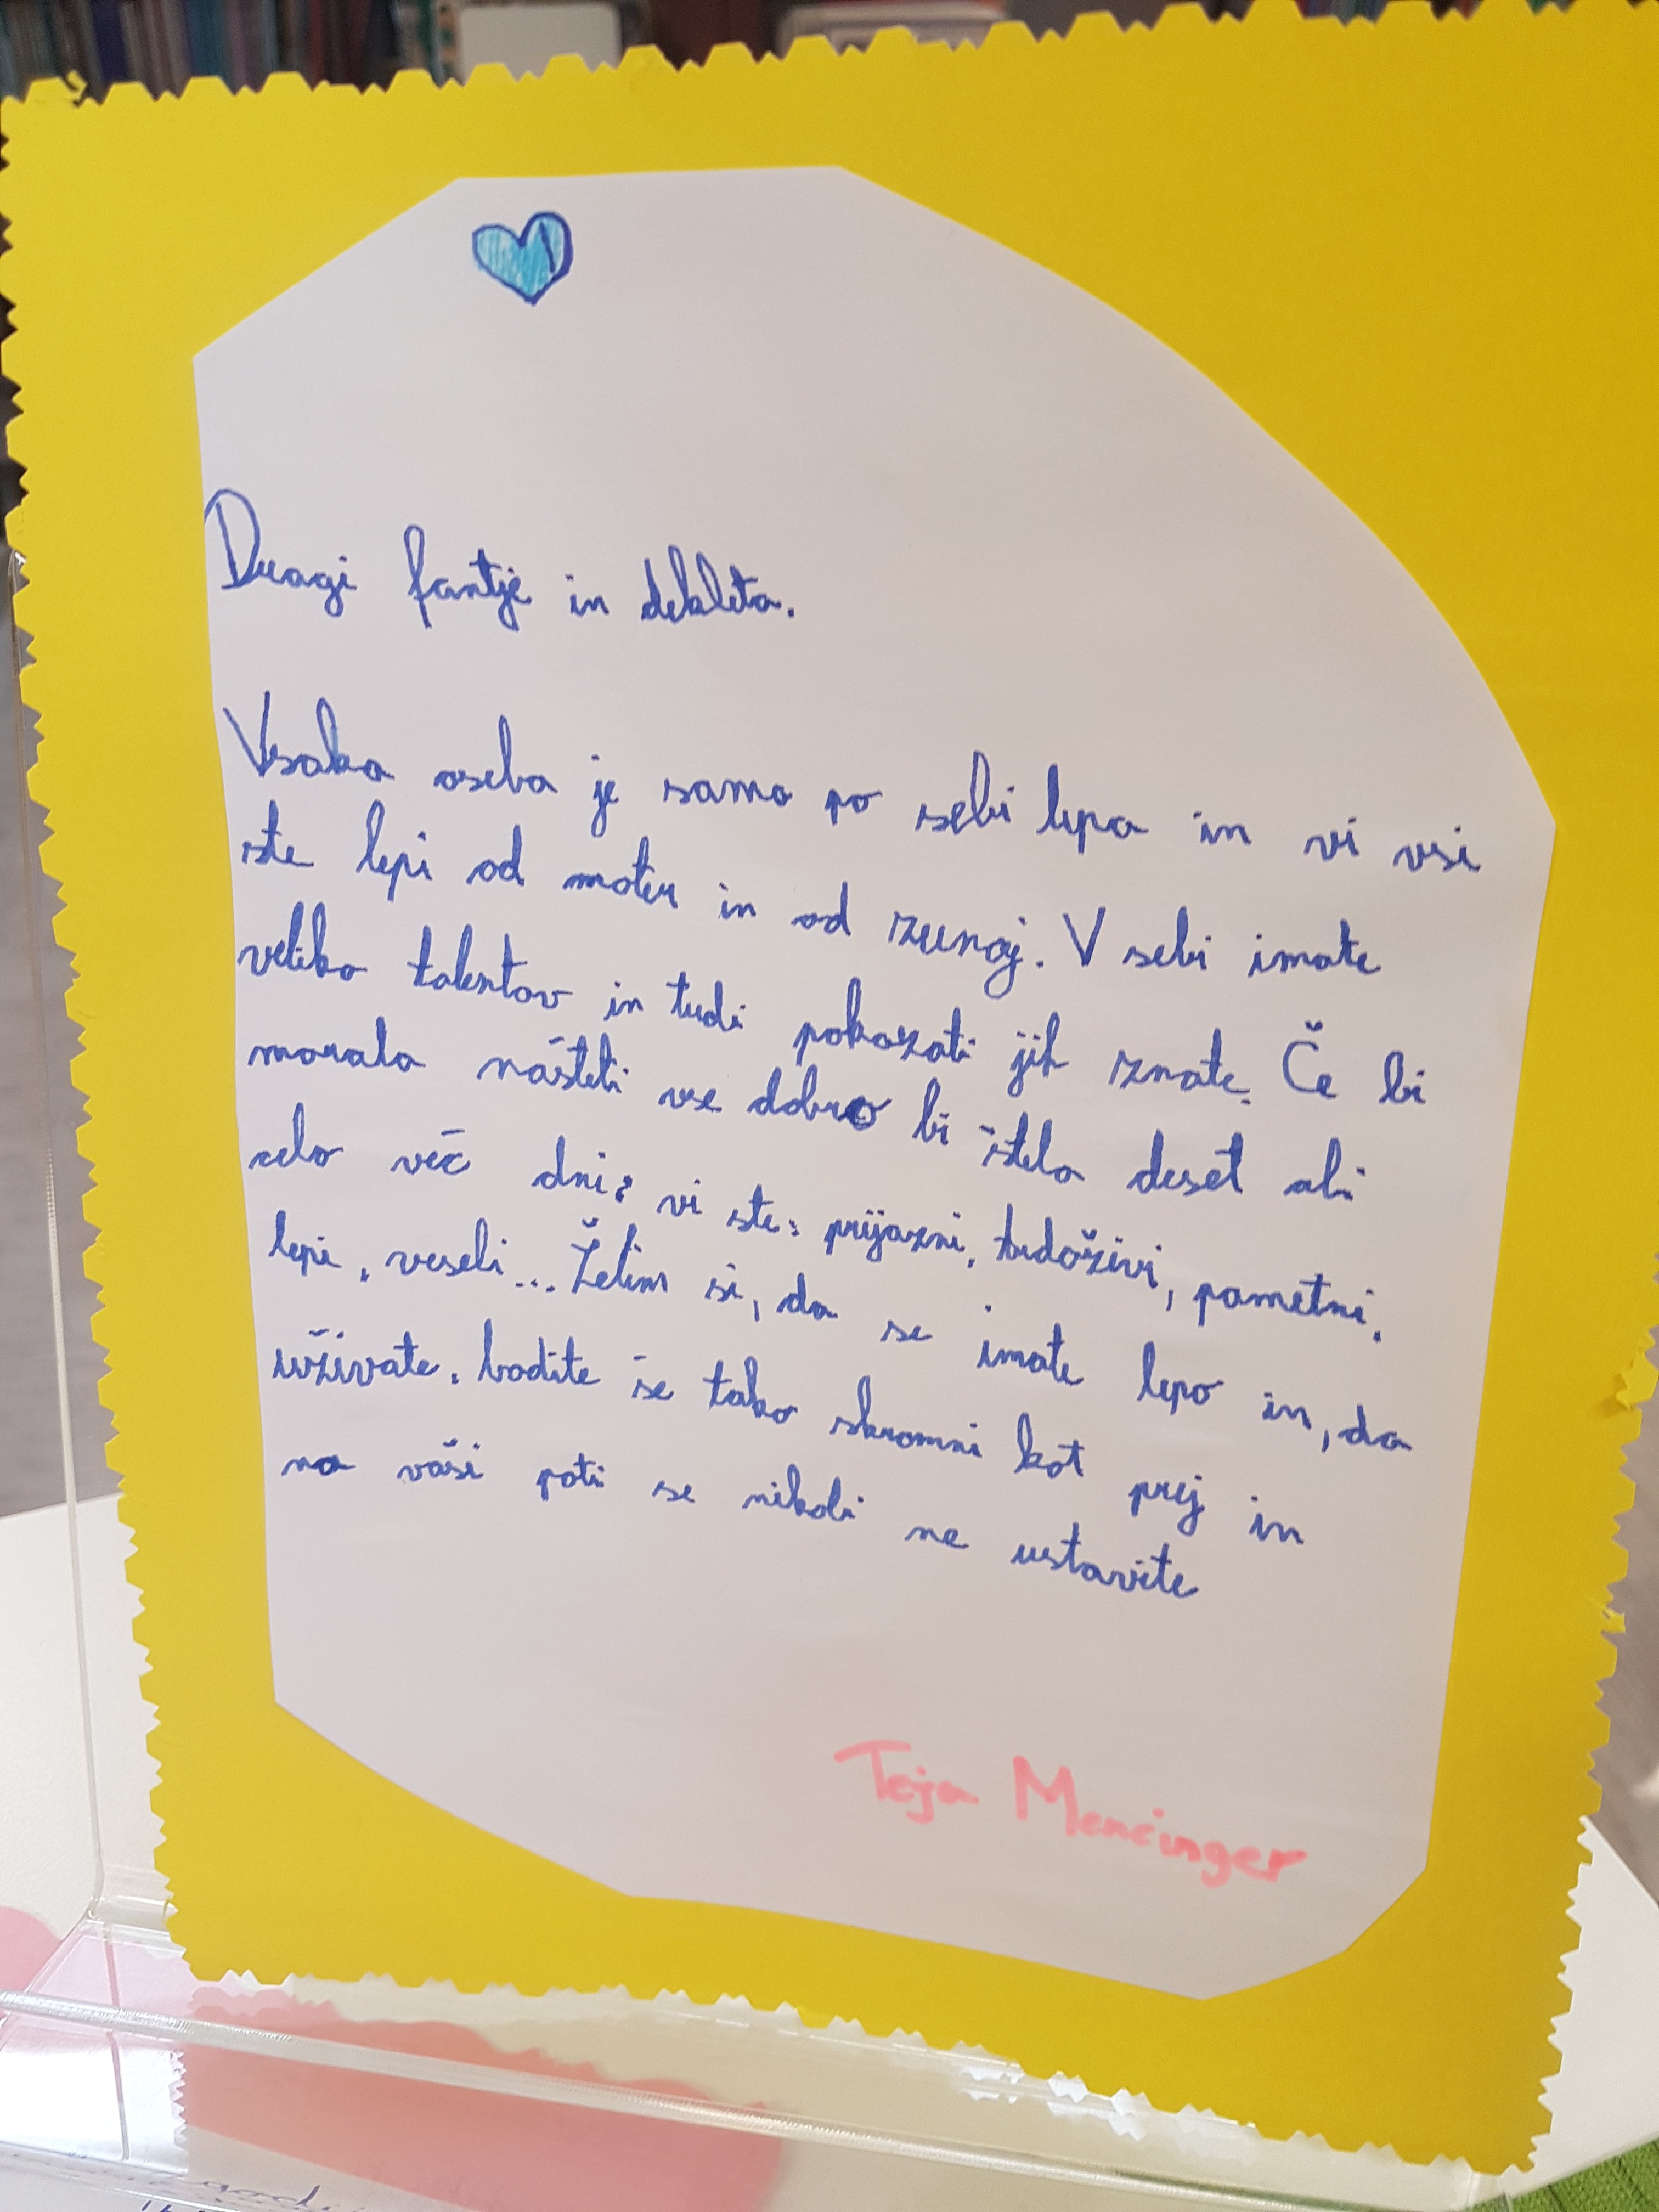 Dragi fantje in dekleta.
Vsaka oseba je sama po sebi lepa in vi vsi
ste lepi od znoter in od zunaj. V sebi imate
veliko talentov in tudi pokazati jih znate. Če bi
morala našteti vse dobro bi štela deset ali
celo več dni: vi ste: prijazni, trdoživi, pametni,
lepi, veseli... Želim si, da se imate lepo in, da
uživate. bodite še tako skromni kot prej in
na vaši poti se nikoli ne ustavite
Teja Mencinger